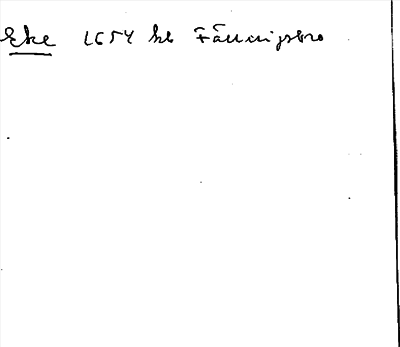 Eke 1654 kb Fännigsbro